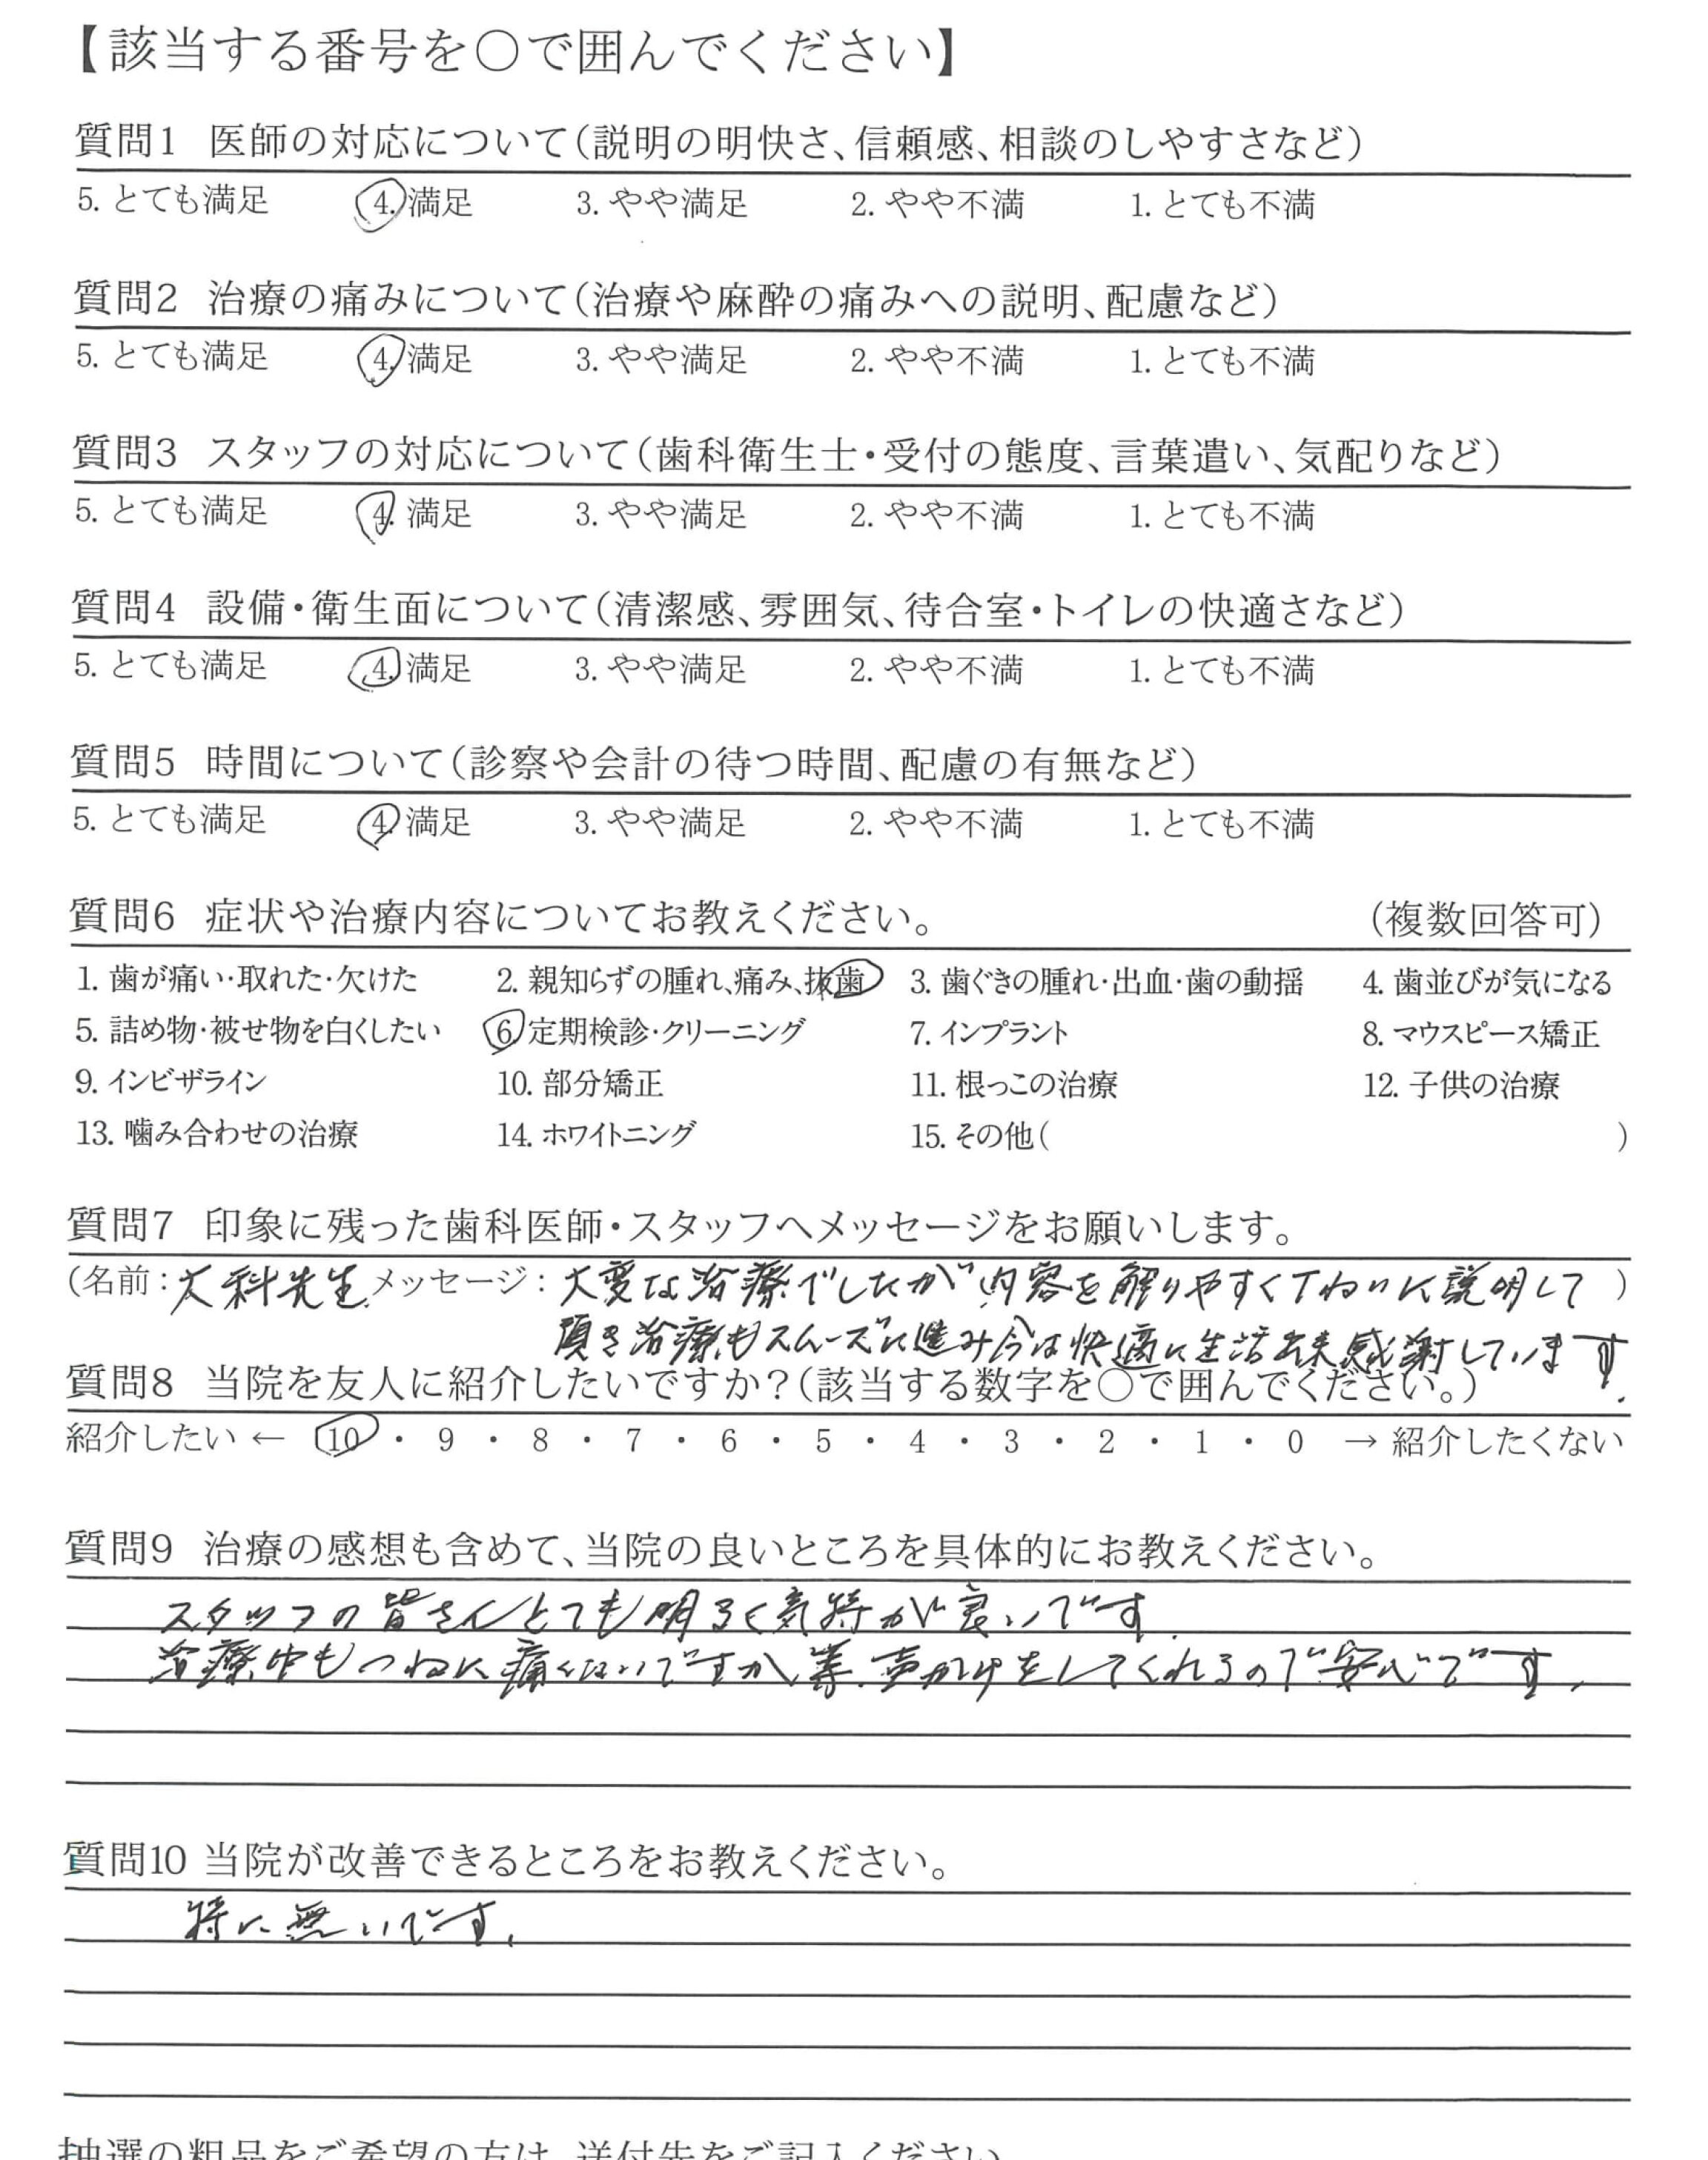 【該当する番号を〇で囲んでください】
質問1 医師の対応について(説明の明快さ、信頼感、相談のしやすさなど)
5. とても満足 4. 満足 3. やや満足 2. やや不満 1. とても不満
質問2 治療の痛みについて(治療や麻酔の痛みへの説明、配慮など)
5. とても満足 4. 満足 3. やや満足 2. やや不満 1. とても不満
質問3 スタッフの対応について(歯科衛生士・受付の態度、言葉遣い、気配りなど)
5. とても満足 4. 満足 3. やや満足 2. やや不満 1. とても不満
質問4 設備・衛生面について(清潔感、雰囲気、待合室・トイレの快適さなど)
5. とても満足 4. 満足 3. やや満足 2. やや不満 1. とても不満
質問5 時間について(診察や会計の待つ時間、配慮の有無など)
5. とても満足 4. 満足 3. やや満足 2. やや不満 1. とても不満
質問6 症状や治療内容についてお教えください。 (複数回答可)
1. 歯が痛い・取れた・欠けた 2. 親知らずの腫れ、痛み、抜歯 3. 歯ぐきの腫れ・出血・歯の動揺 4. 歯並びが気になる
5. 詰め物・被せ物を白くしたい 6. 定期検診・クリーニング 7. インプラント 8. マウスピース矯正
9. インビザライン 10. 部分矯正 11. 根っこの治療 12. 子供の治療
13. 噛み合わせの治療 14. ホワイトニング 15. その他( )
質問7 印象に残った歯科医師・スタッフへメッセージをお願いします。
(名前:大科先生 メッセージ:大変な治療でしたが内容を解りやすくていねいに説明して)
頂き治療もスムーズに進み今は快適に生活出来感謝しています.
質問8 当院を友人に紹介したいですか?(該当する数字を〇で囲んでください。)
紹介したい ← 10 ・ 9 ・ 8 ・ 7 ・ 6 ・ 5 ・ 4 ・ 3 ・ 2 ・ 1 ・ 0 → 紹介したくない
質問9 治療の感想も含めて、当院の良いところを具体的にお教えください。
スタッフの皆さんとても明るく気持が良いです.
治療中もつねに痛くないですか、等、声かけをしてくれるので安心です、
質問10 当院が改善できるところをお教えください。
特に無いです、
抽選の粗品をご希望の方は、送付先をご記入ください